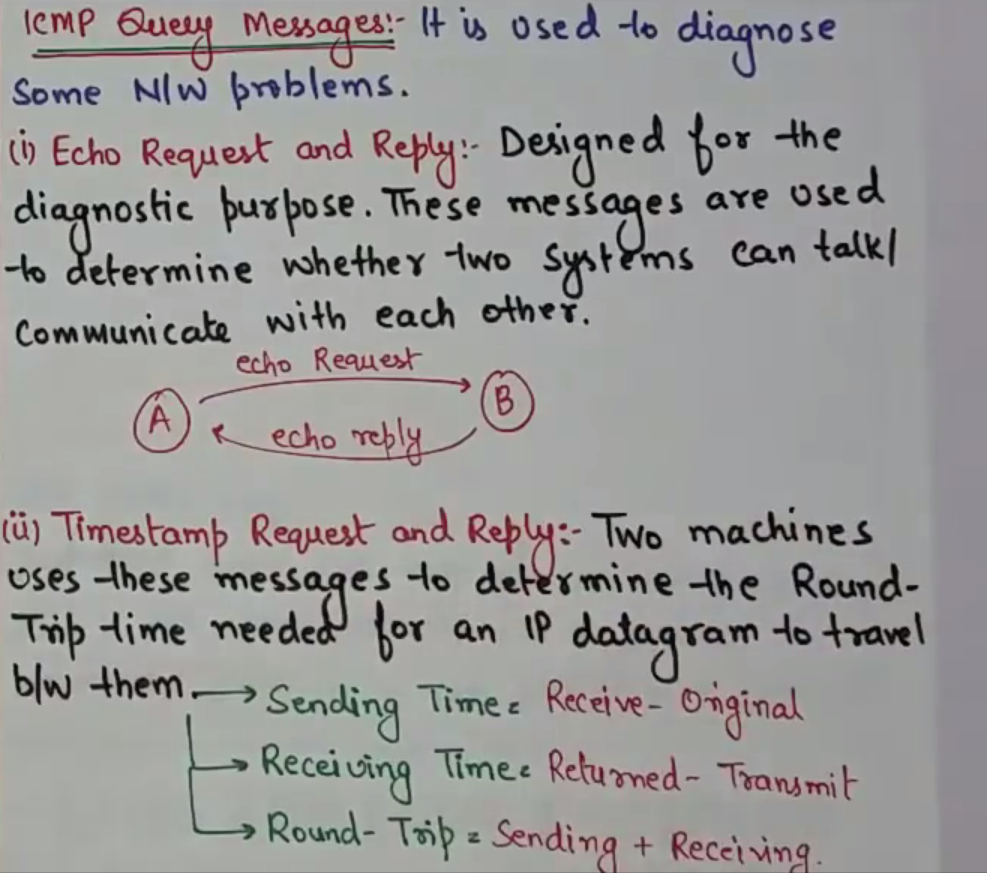 ICMP Query Messages:- It is used to diagnose
Some N/W problems.
(i) Echo Request and Reply:- Designed for the
diagnostic purpose. These messages are used
to determine whether two systems can talk/
communicate with each other.
echo Request
A
B
echo reply
(ii) Timestamp Request and Reply:- Two machines
uses these messages to determine the Round-
Trip time needed for an IP datagram to travel
b/w them. → Sending Time = Receive - Original
→ Receiving Time = Returned - Transmit
→ Round-Trip = Sending + Receiving.